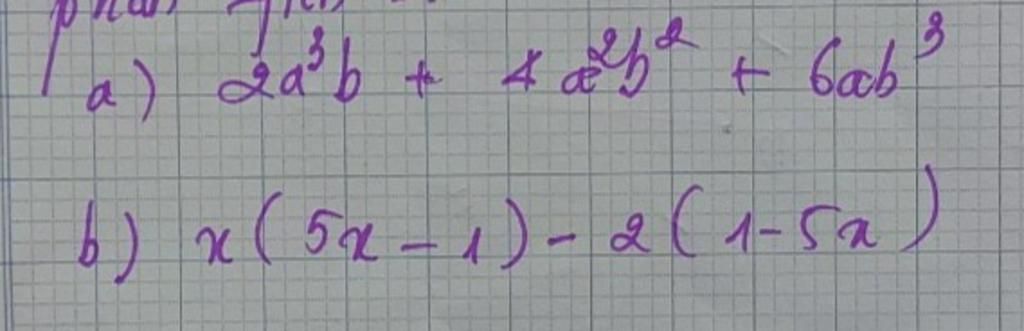 a) 2a³b + 4a²b² + 6ab³
b) x(5x - 1) - 2(1 - 5x)